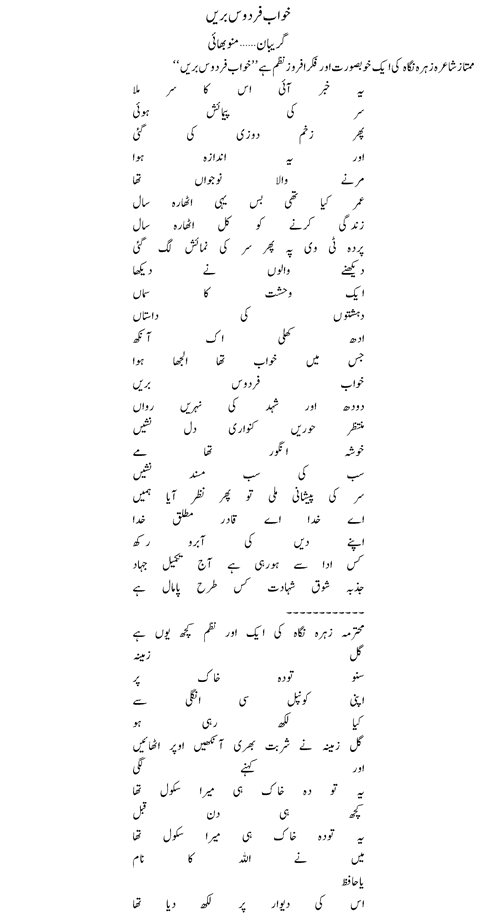 خواب فردوس بریں
گریبان......منو بھائی
ممتاز شاعرہ زہرہ نگاہ کی ایک خوبصورت اور فکر افروز نظم ہے ’’خواب فردوس بریں‘‘
یہ خبر آئی اس کا سر ملا
سر کی پیمائش ہوئی
پھر زخم دوزی کی گئی
اور یہ اندازہ ہوا
مرنے والا نوجواں تھا
عمر کیا تھی بس یہی اٹھارہ سال
زندگی کرنے کو کل اٹھارہ سال
پردہ ٹی وی پہ پھر سر کی نمائش لگ گئی
دیکھنے والوں نے دیکھا
ایک وحشت کا سماں
دہشتوں کی داستاں
ادھ کھلی اک آنکھ
جس میں خواب تھا الجھا ہوا
خواب فردوس بریں
دودھ اور شہد کی نہریں رواں
منتظر حوریں کنواری دل نشیں
خوشہ انگور تھا مے
سب کی سب مسند نشیں
سر کی پیشانی ملی تو پھر نظر آیا ہمیں
اے خدا اے قادر مطلق خدا
اپنے دیں کی آبرو رکھ
کس ادا سے ہورہی ہے آج تکمیل جہاد
جذبہ شوق شہادت کس طرح پامال ہے
------------
محترمہ زہرہ نگاہ کی ایک اور نظم کچھ یوں ہے
گل زمینہ
سنو تودہ خاک پر
اپنی کونپل سی انگلی سے
کیا لکھ رہی ہو
گل زمینہ نے شربت بھری آنکھیں اوپر اٹھائیں
اور کہنے لگی
یہ تو دہ خاک ہی میرا سکول تھا
کچھ ہی دن قبل
یہ تودہ خاک ہی میرا سکول تھا
میں نے اللہ کا نام
یاحافظ
اس کی دیوار پر لکھ دیا تھا